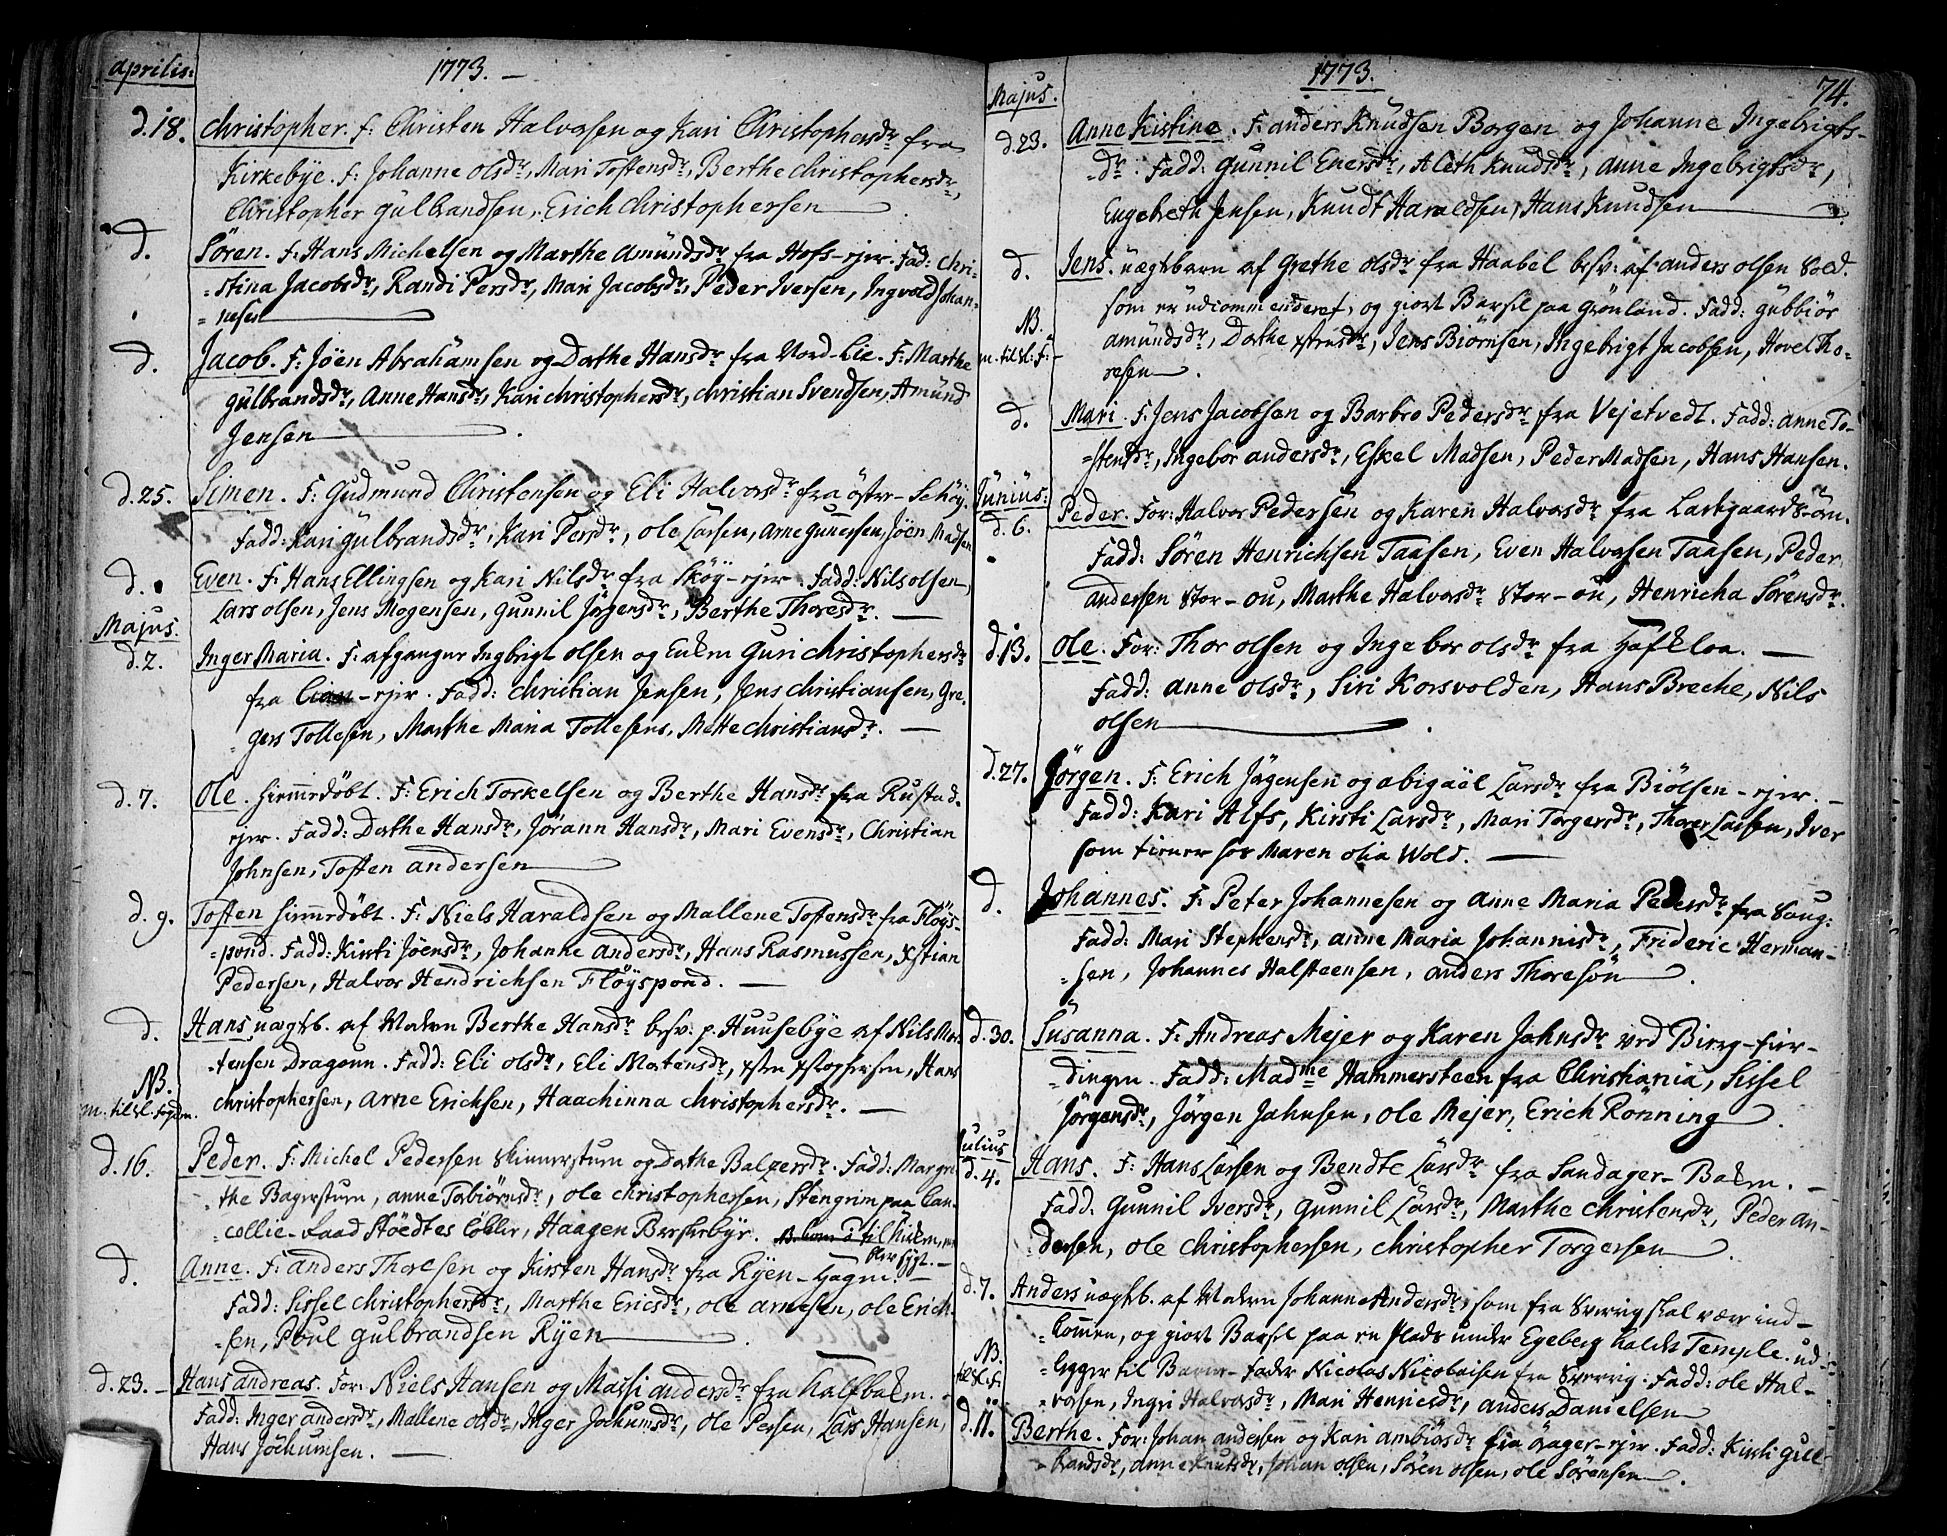 Aprilis:
1773. –
d. 18. Christopher. f: Christen Halvorsen og Kari Christophersdr fra
Kirkebye. f: Johanne Olsdr, Mari Tostensdr, Berthe Christophersdr,
Christopher Gulbrandsen, Erich Christophersen
d. Sören. f: Hans Michelsen og Marthe Amundsdr fra Hofs-ejer. Fad: Chri-
-stina Jacobsdr, Randi Persdr, Mari Jacobsdr, Peder Iversen, Ingvold Johan-
-nesen
d. Jacob. F: Jöen Abrahamsen og Dorthe Hansdr fra Nord-Lie. F: Marthe
Gulbrandsdr, Anne Hansdr, Kari Christophersdr, Christian Svendsen, Amund
Jensen
d. 25. Simen. F: Gudmund Christensen og Eli Halvorsdr fra öster-Schöy.
Fadd: Kari Gulbrandsdr, Kari Persdr, Ole Larsen, Arne Gunersen, Jöen Madsen
d. Even. F: Hans Ellingsen og Kari Nilsdr fra Sköy-ejer. Fadd: Nils Olsen,
Lars Olsen, Jens Mogensen, Gunnil Jörgensdr, Berthe Thoresdr.
Majus.
d. 2. Inger Maria. F: afgangne Ingbrigt Olsen og Enken Guri Christophersdr
fra Lian-ejer. Fadd: Christian Jensen, Jens Christiansen, Gre-
gers Tollesen, Marthe Maria Tollesens, Mette Christiansdr.
d. 7. Ole. hiemmedöbt. F: Erich Torkelsen og Berthe Hansdr fra Rustad-
ejer. Fadd: Dorthe Hansdr, Jörann Hansdr, Mari Evensdr, Christian
Johnsen, Tosten Andersen
d. 9. Tosten hiemmedöbt. F: Niels Haraldsen og Mallene Tostensdr fra Flöys-
-pond. Fadd: Kirsti Jöensdr, Johanne Andersdr, Hans Rasmussen, Xstian
Pedersen, Halvor Hendrichsen Flöyspond.
d. Hans uægtb. af Moderen Berthe Hansdr besv: p. Huusebye af Nils Mor-
-tensen Dragoun. Fadd: Eli Olsdr, Eli Mortensdr, Xsten Xstophersen, Hans
NB.
Christophersen, Arne Erichsen, Haachinna Christophersdr.
d. 16. Peder. F: Michel Pedersen Skinnerstuen og Dorthe Balzersdr. Fadd: Margre-
the Bagerstuen, Anne Torbiörnsdr, Ole Christophersen, Stengrim paa Can-
-cellie-Raad Stöedtes Lökke, Haagen Berskerbye.
d. Anne. F: Anders Thoresen og Kirsten Hansdr fra Ryen-Hagen.
Fadd: Sissel Christophersdr, Marthe Ericsdr, Ole Arnesen, Ole Erich-
-sen, Poul Gulbrandsen Ryen
d. 23. – Hans Andreas. For: Niels Hansen og Massi Andersdr fra Kalfbaken.
Fadd: Inger Andersdr, Mallene Olsdr, Inger Jochumsdr, Ole Persen, Lars Hansen,
Hans Jöchumsen.
1773.
74.
Majus.
d. 23. Anne Kistine. F: Anders Knudsen Borgen og Johanne Ingebrigts-
-dr. Fadd: Gunnil Enersdr, Aleth Knudsdr, Anne Ingebrigtsdr,
Engebreth Jensen, Knudt Haraldsen, Hans Knudsen
d. Jens. uægtebarn af Grethe Olsdr fra Haabel besv: af Anders Olsen Sold.
som er udcommenderet, og giort Barsel paa Grönland. Fadd: Gubbiör
NB.
Amundsdr, Dorthe Xstensdr, Jens Biörnsen, Ingebrigt Jacobsen, Hovel Tho-
resen
d. Mari. F: Jens Jacobsen og Barbro Pedersdr fra Vejetvedt. Fadd: Anne To-
-stensdr, Ingebor Andersdr, Eskel Madsen, Peder Madsen, Hans Hansen.
Junius:
d. 6. Peder. For: Halvor Pedersen og Karen Halvorsdr fra Larkgaards-öen.
Fadd: Sören Henrichsen Taasen, Even Halvorsen Taasen, Peder
Andersen Stor-ou, Marthe Halvorsdr Stor-ou, Henricha Sörensdr.
d. 13. Ole. For: Thor Olsen og Ingebor Olsdr fra Hafkloa.
Fadd: Anne Olsdr, Siri Korsvolden, Hans Breche, Nils
Olsen
d. 27. Jörgen. F: Erich Jörgensen og Abigaël Larsdr fra Biölsen-ejer.
Fadd: Kari Alfs, Kirsti Larsdr, Mari Torgersdr, Thorer Larsen, Iver
som tiener hos Maren Olia Wold.
d. Johannes. F: Peter Johannesen og Anne Maria Pedersdr fra Saug:
Fadd: Mari Stephensdr, Anne Maria Johannisdr, Frideric Herman-
-sen, Johannes Halsteensen, Anders Thoresön
d. 30. Susanna. F: Andreas Mejer og Karen Johnsdr ved Bierg-fier-
-dingen. Fadd: Madme Hammersteen fra Christiania, Sissel
Jörgensdr, Jörgen Jahnsen, Ole Mejer, Erich Rönning
Julius
d. 4. Hans. F: Hans Larsen og Bendte Larsdr fra Sandager-Baken.
Fadd: Gunnil Iversdr, Gunnil Larsdr, Marthe Christensdr, Peder An-
-dersen, Ole Christophersen, Christopher Torgersen
d. 7. Anders uægtb. af Moderen Johanne Andersdr, som fra Sverrig skal være ind-
-kommen, og giort Barsel paa en Plads under Egeberg kaldet Temple. ud-
NB.
-legger til Barne-Fader Nicolas Nicolaisen fra Sverrig. Fadd: Ole Hal-
-vorsen, Ingri Halvorsdr, Mari Henricsdr, Anders Danielsen
d. 11. Berthe. For: Johan Andersen og Kari Ambiörsdr fra Ager-ejer. Fadd: Kirsti Gull-
-brandsdr, Anne Knutsdr, Johan Olsen, Sören Olsen, Ole Sörensen